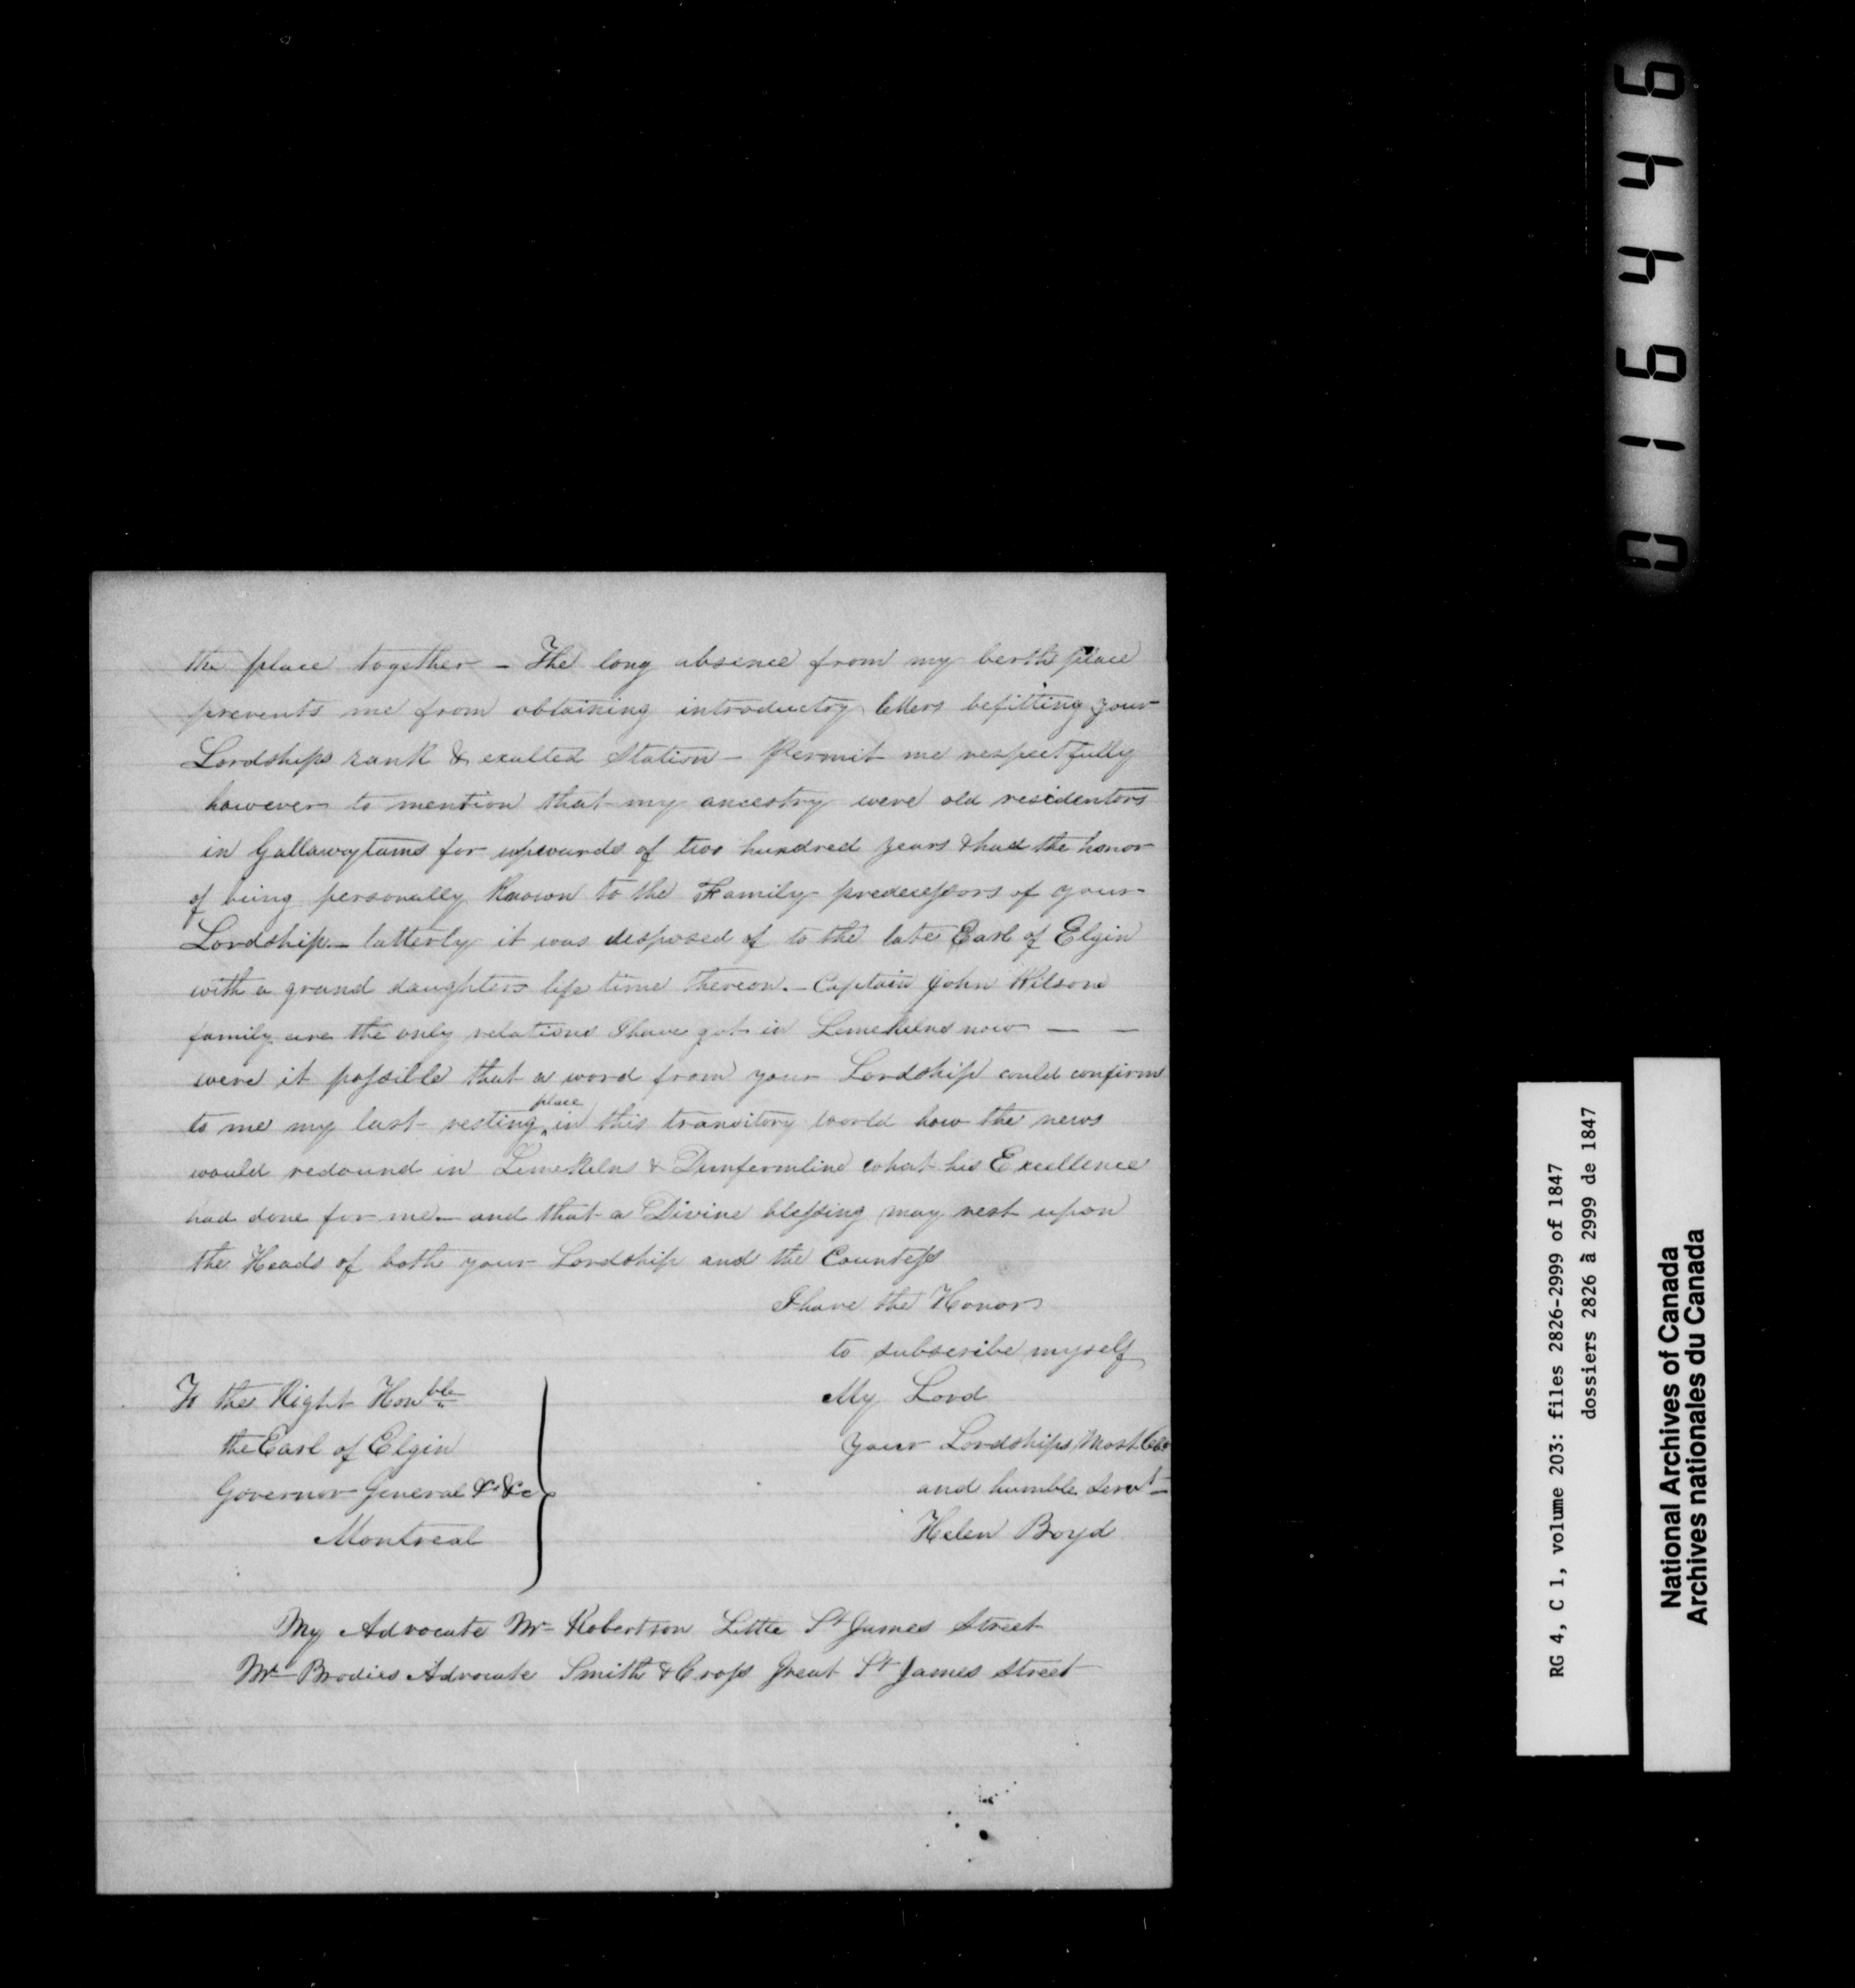 the place together – The long absence from my berth place
prevents me from obtaining introductory letters befitting your
Lordships rank & exalted Station – Permit me respectfully
however to mention that my ancestry were old residentors
in Gallawaytams for upwards of two hundred years & had the honor
of being personally known to the Family predecessors of your
Lordship – latterly it was disposed of to the late Earl of Elgin
with a grand daughters life time thereon. – Captain John Wilsons
family are the only relations I have got in Limekilns now — —
were it possible that a word from your Lordship could confirm
to me my last resting place in this transitory world how the news
would redound in Limekilns & Dunfermline what his Excellence
had done for me – and that a Divine blessing may rest upon
the Heads of both your Lordship and the Countess
I have the Honor
to subscribe myself
My Lord
Your Lordships Most
and humble Servt
Helen Boyd
To the Right Honble
the Earl of Elgin
Governor General &c &c
Montreal
My Advocate Mr Robertson Little St James Street
Mr Brodies Advocate Smith & Cross Great St James Street
016446
RG 4, C 1, volume 203: files 2826-2999 of 1847
dossiers 2826 à 2999 de 1847
National Archives of Canada
Archives nationales du Canada